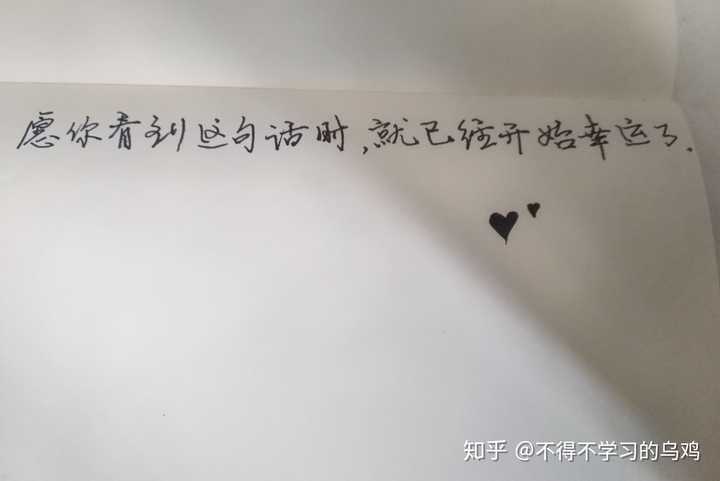 愿你看到这句话时,就已经开始幸运了.
知乎 @不得不学习的乌鸡